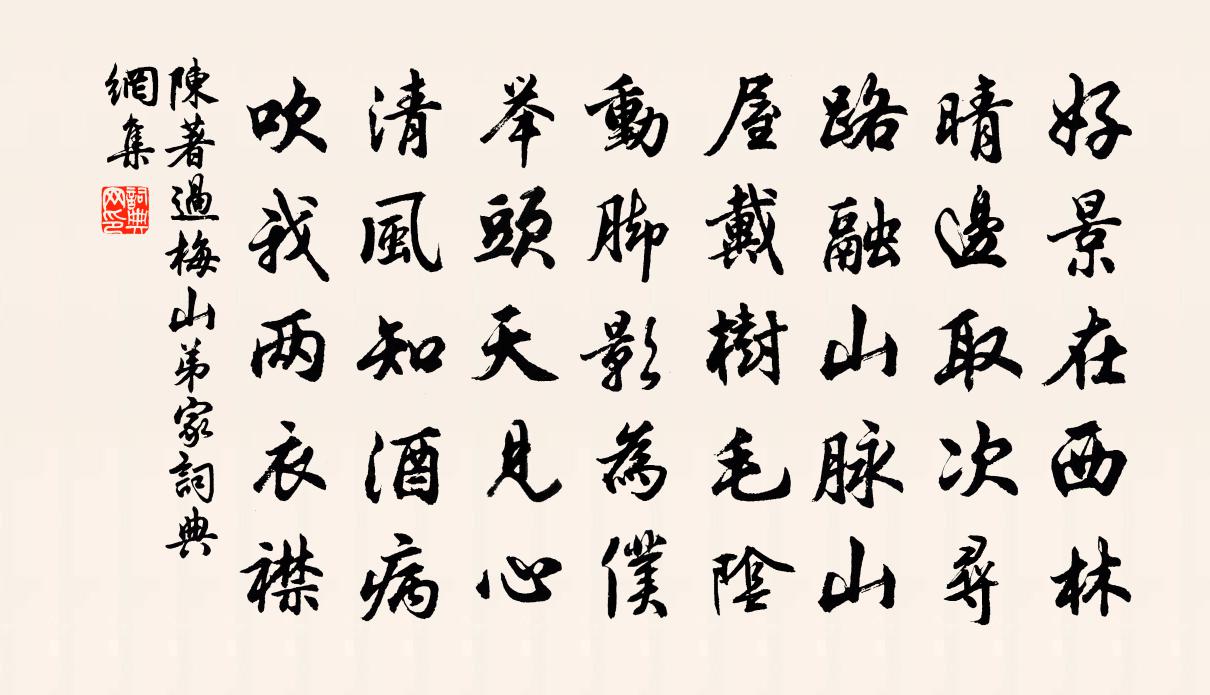 好景在西林
晴邊取次尋
路融山脉山
屋戴樹毛陰
動脚影為僕
举頭天見心
清風知酒病
吹我两衣襟
陳著過梅山弟家詞典
網集
詞典
网印